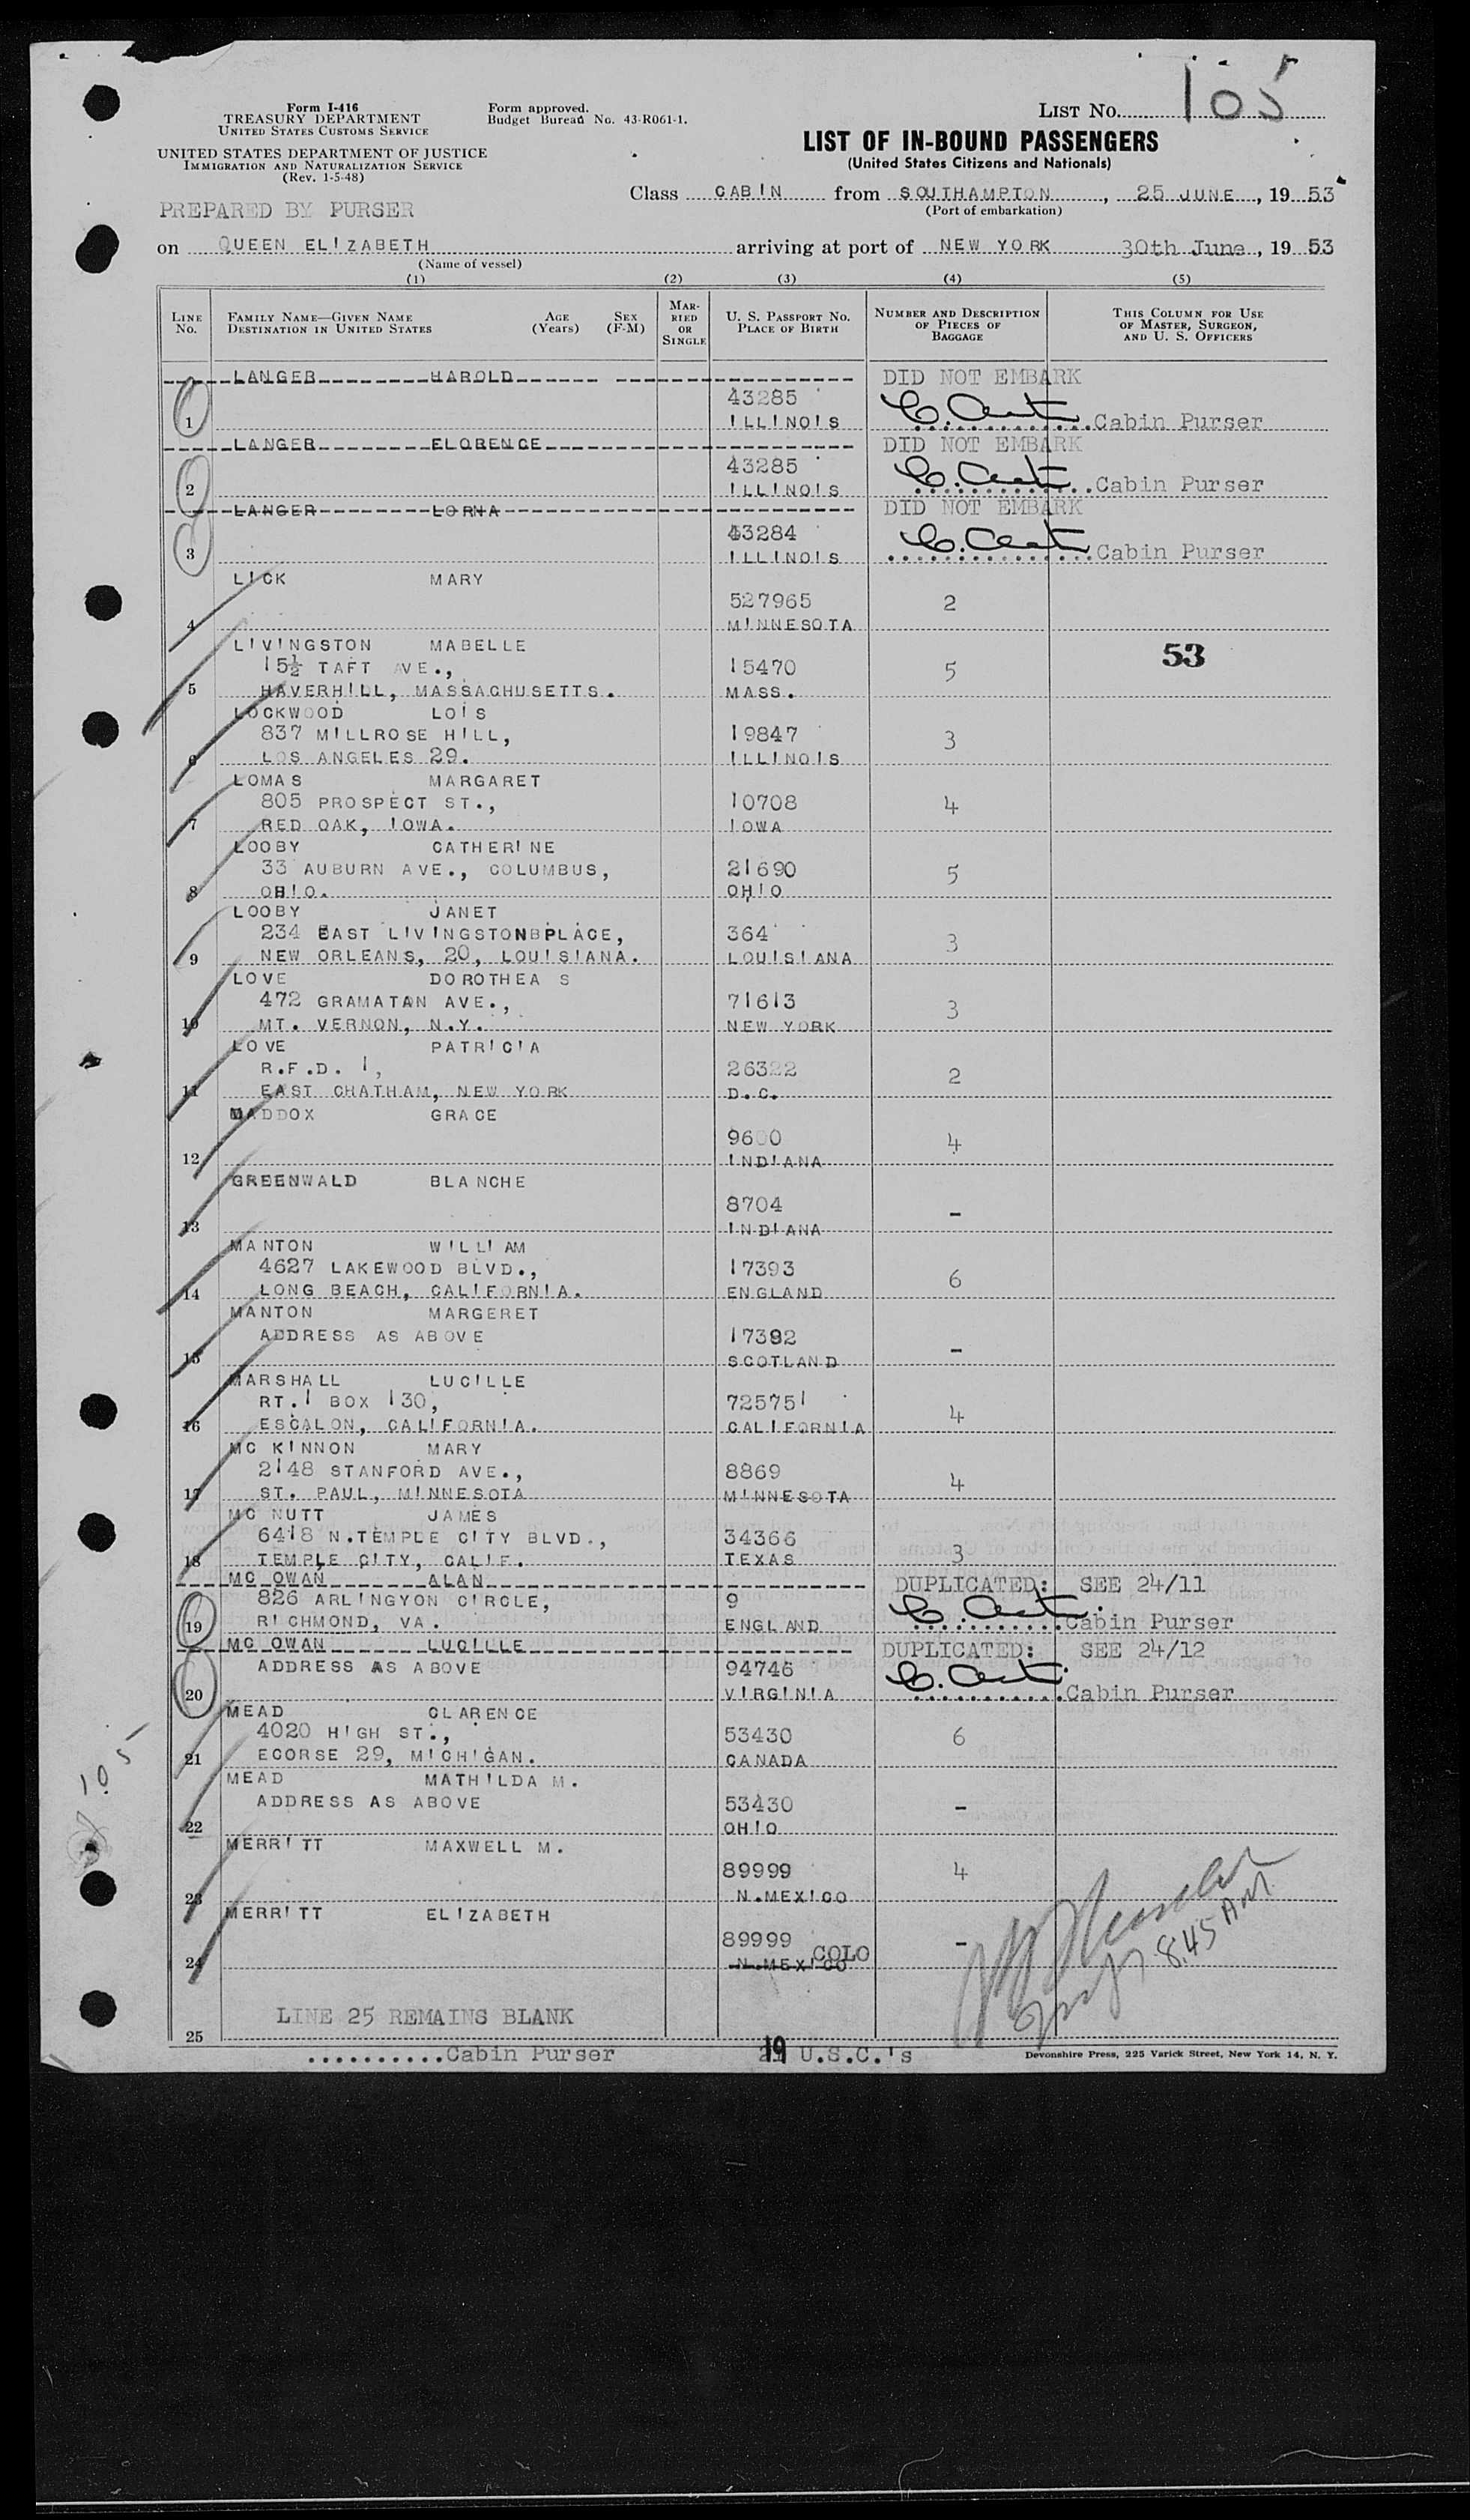 Form I-416
TREASURY DEPARTMENT
UNITED STATES CUSTOMS SERVICE
UNITED STATES DEPARTMENT OF JUSTICE
IMMIGRATION AND NATURALIZATION SERVICE
(Rev. 1-5-48)
Form approved.
Budget Bureau No. 43-R061-1.
LIST NO. 105
LIST OF IN-BOUND PASSENGERS
(United States Citizens and Nationals)
Class CABIN from SOUTHAMPTON, 25 JUNE, 19 53
(Port of embarkation)
PREPARED BY PURSER
on QUEEN ELIZABETH arriving at port of NEW YORK 30th June, 19 53
(Name of vessel)
(1) (2) (3) (4) (5)
LINE No. FAMILY NAME—GIVEN NAME DESTINATION IN UNITED STATES AGE (Years) SEX (F-M) MARRIED OR SINGLE U. S. PASSPORT NO. PLACE OF BIRTH NUMBER AND DESCRIPTION OF PIECES OF BAGGAGE THIS COLUMN FOR USE OF MASTER, SURGEON, AND U. S. OFFICERS
LANGER HAROLD DID NOT EMBARK
43285
1 ILLINOIS Cabin Purser
LANGER FLORENCE DID NOT EMBARK
43285
2 ILLINOIS Cabin Purser
LANGER LORNA DID NOT EMBARK
43284
3 ILLINOIS Cabin Purser
LICK MARY
527965 2
4 MINNESOTA
LIVINGSTON MABELLE 53
15½ TAFT AVE., 15470 5
5 HAVERHILL, MASSACHUSETTS. MASS.
LOCKWOOD LOIS
837 MILLROSE HILL, 19847 3
6 LOS ANGELES 29. ILLINOIS
LOMAS MARGARET
805 PROSPECT ST., 10708 4
7 RED OAK, IOWA. IOWA
LOOBY CATHERINE
33 AUBURN AVE., COLUMBUS, 21690 5
8 OHIO. OHIO
LOOBY JANET
234 EAST LIVINGSTONBPLACE, 364 3
9 NEW ORLEANS, 20, LOUISIANA. LOUISIANA
LOVE DOROTHEA S
472 GRAMATAN AVE., 71613 3
10 MT. VERNON, N.Y. NEW YORK
LOVE PATRICIA
R.F.D. 1, 26322 2
11 EAST CHATHAM, NEW YORK D.C.
MADDOX GRACE
9600 4
12 INDIANA
GREENWALD BLANCHE
8704 -
13 INDIANA
MANTON WILLIAM
4627 LAKEWOOD BLVD., 17393 6
14 LONG BEACH, CALIFORNIA. ENGLAND
MANTON MARGERET
ADDRESS AS ABOVE 17392 -
15 SCOTLAND
MARSHALL LUCILLE
RT.1 BOX 130, 725751 4
16 ESCALON, CALIFORNIA. CALIFORNIA
MC KINNON MARY
2148 STANFORD AVE., 8869 4
17 ST. PAUL, MINNESOTA MINNESOTA
MC NUTT JAMES
6418 N.TEMPLE CITY BLVD., 34366 3
18 TEMPLE CITY, CALIF. TEXAS
MC OWAN ALAN DUPLICATED: SEE 24/11
826 ARLINGYON CIRCLE, 9
19 RICHMOND, VA. ENGLAND Cabin Purser
MC OWAN LUCILLE DUPLICATED: SEE 24/12
ADDRESS AS ABOVE 94746
20 VIRGINIA Cabin Purser
MEAD CLARENCE
4020 HIGH ST., 53430 6
21 ECORSE 29, MICHIGAN. CANADA
MEAD MATHILDA M.
ADDRESS AS ABOVE 53430 -
22 OHIO
MERRITT MAXWELL M.
89999 4
23 N.MEXICO
MERRITT ELIZABETH
89999 -
24 N.MEXICO COLO
8.45 AM
LINE 25 REMAINS BLANK
25
..........Cabin Purser 19 U.S.C.'s
Devonshire Press, 225 Varick Street, New York 14, N. Y.
105